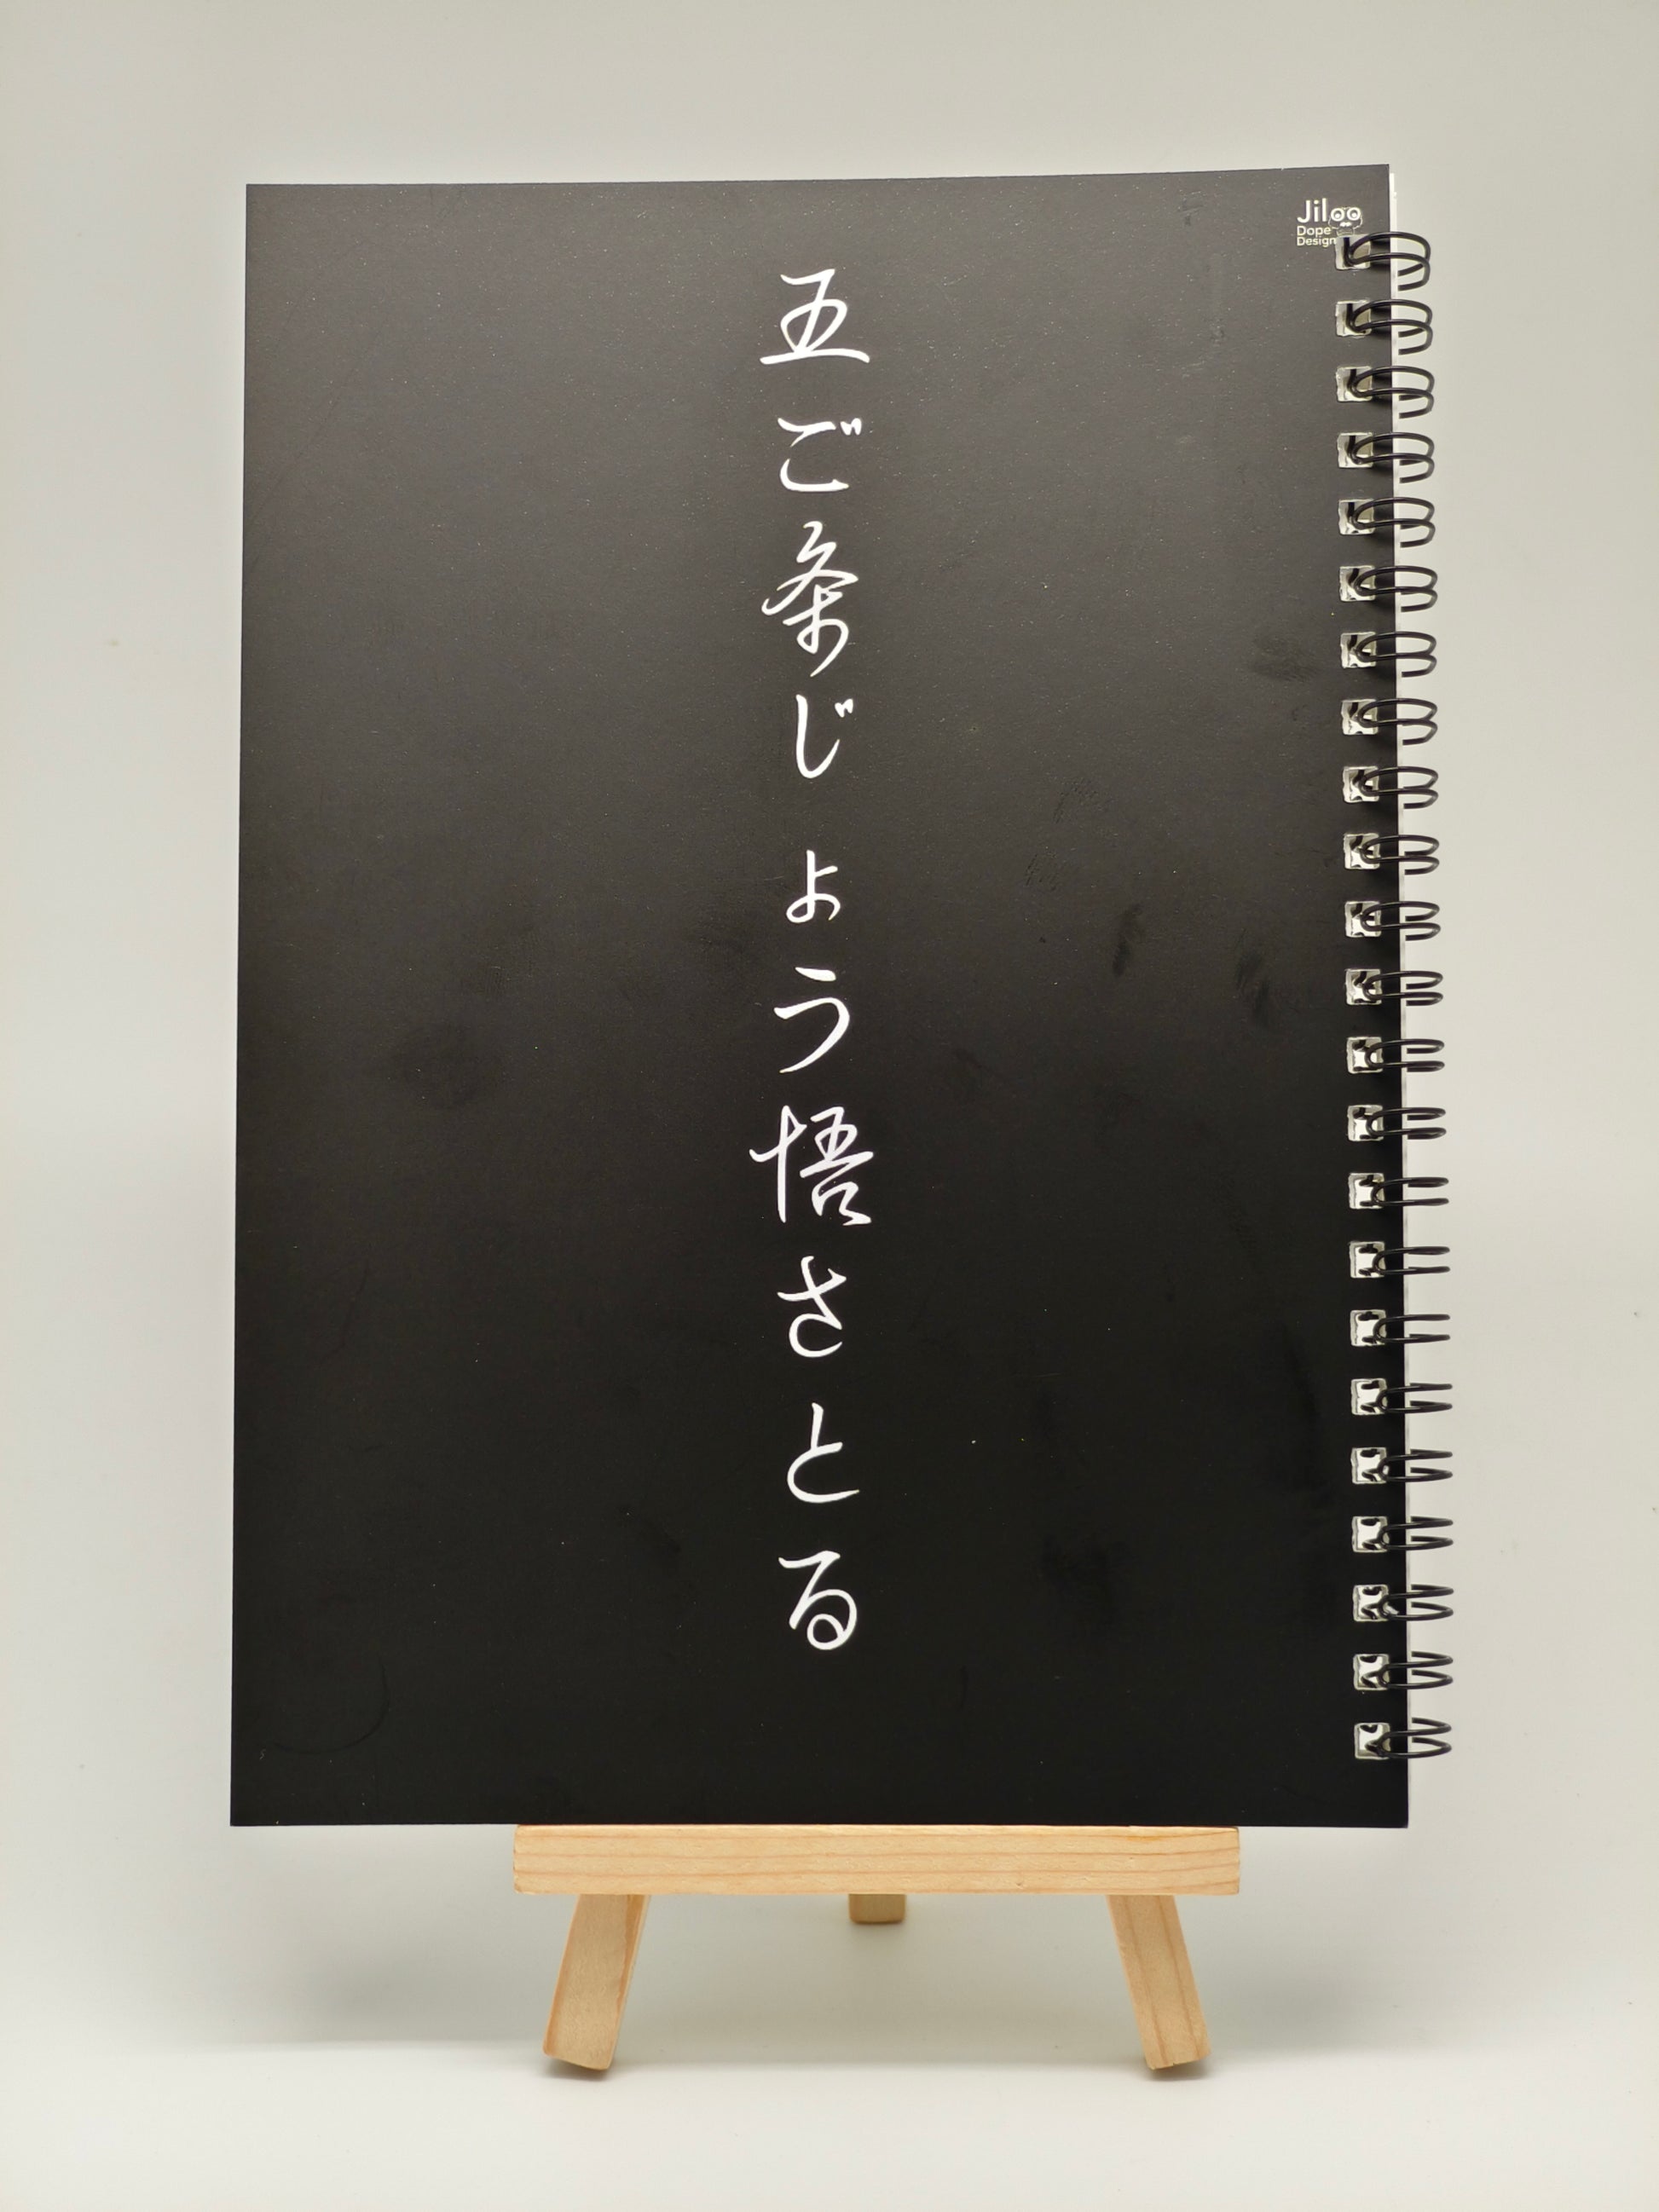 五ご条じょう悟さとる
Jiloo
Dope
Design